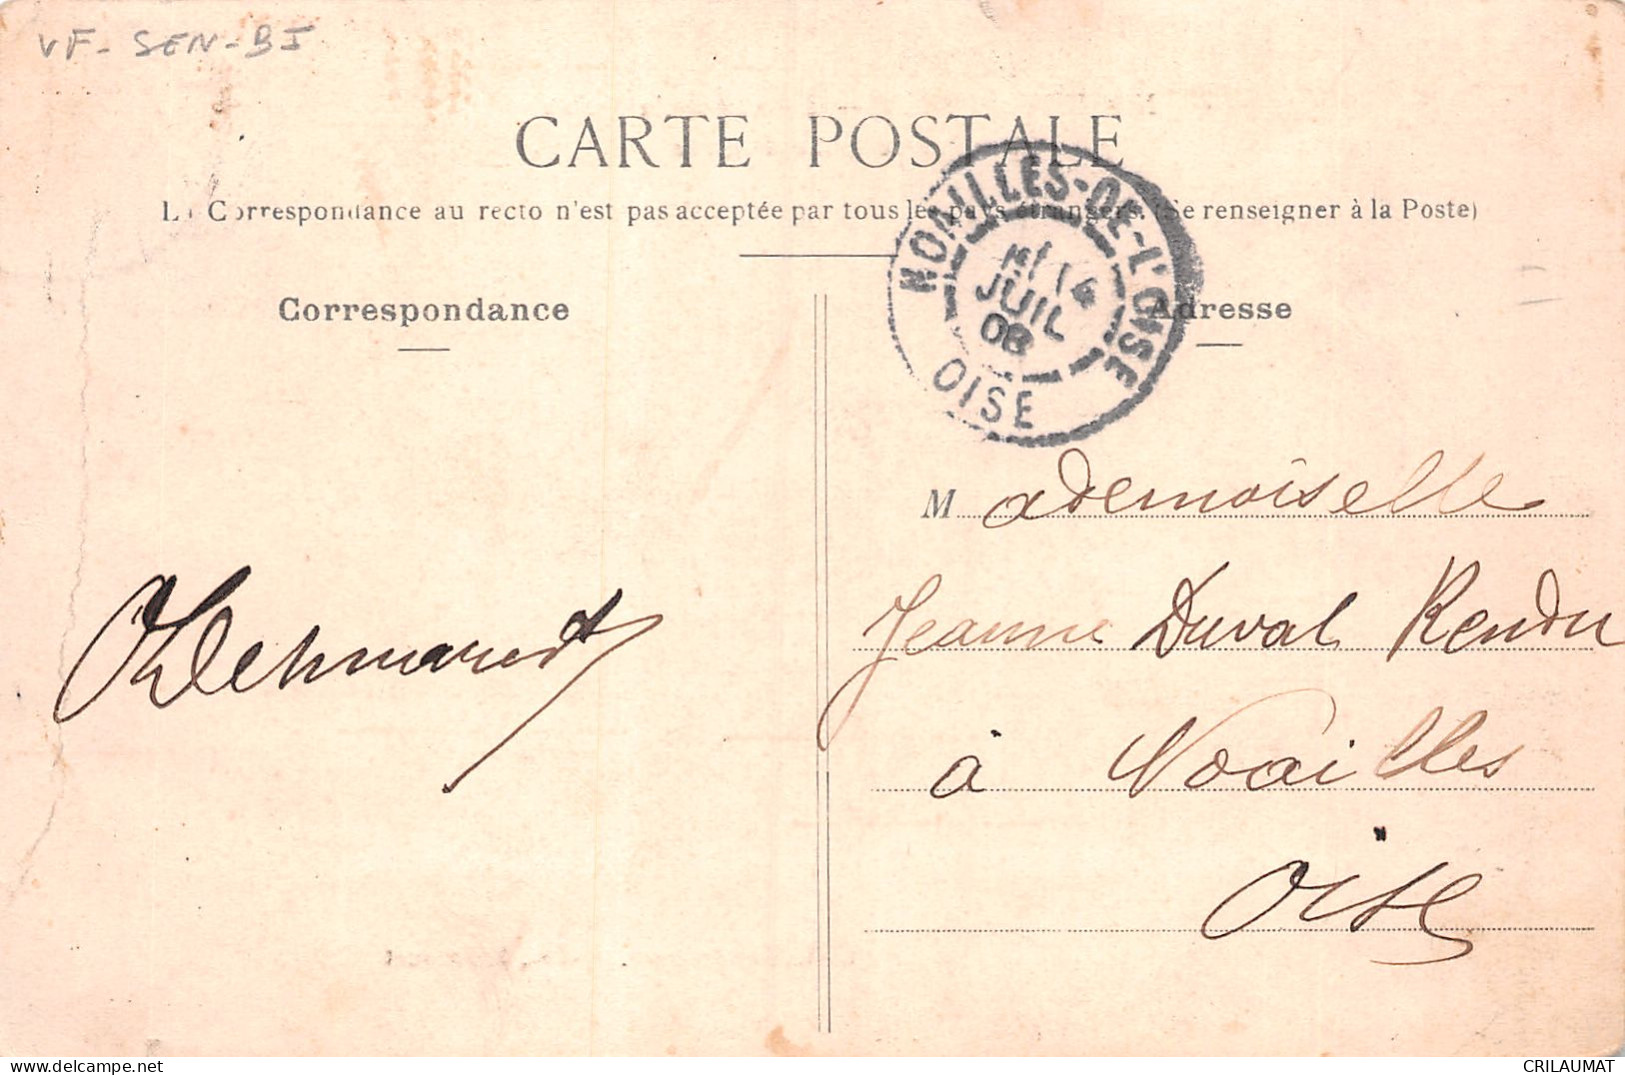 VF - SEN - BI
CARTE POSTALE
La Correspondance au recto n'est pas acceptée par tous les pays étrangers. (Se renseigner à la Poste)
NOAILLES-DE-L'OISE
14
JUIL
08
OISE
Correspondance
Adresse
Mademoiselle
Jeanne Duval Rendu
à Noailles
Oise
CRILAUMAT